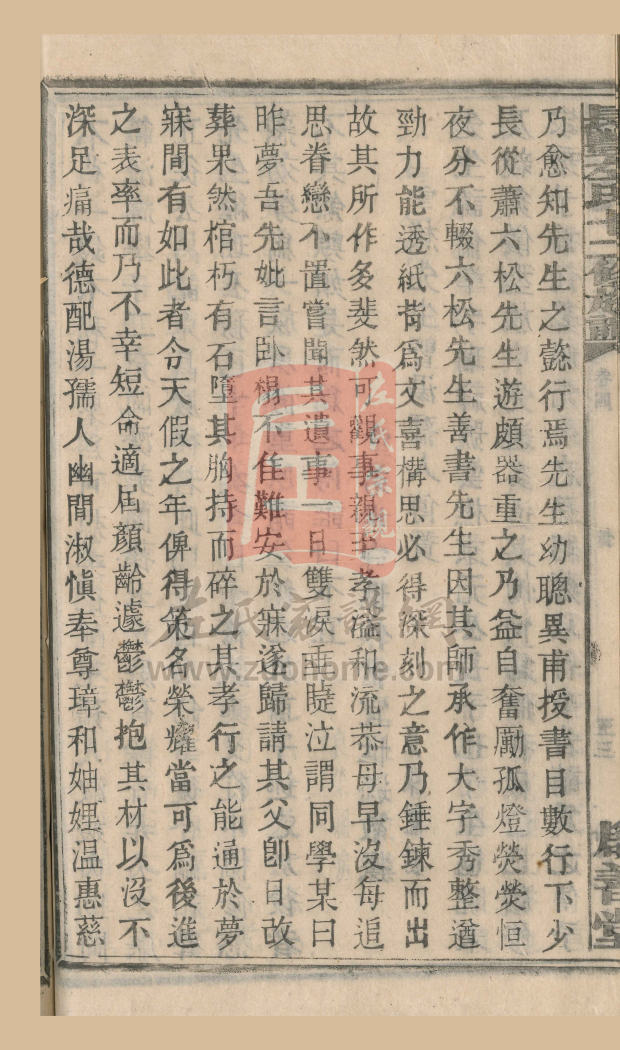 乃愈知先生之懿行焉先生幼聰異甫授書目數行下少
長從蕭六松先生遊頗器重之乃益自奮勵孤燈熒熒恒
夜分不輟六松先生善書先生因其師承作大字秀整遒
勁力能透紙背爲文喜構思必得深刻之意乃錘鍊而出
故其所作多斐然可觀事親至孝溫和流恭母早沒每追
思眷戀不置嘗聞其遺事一日雙淚垂睫泣謂同學某曰
昨夢吾先妣言卧榻不佳難安於寐遂歸請其父卽日改
葬果然棺朽有石墮其胸持而碎之其孝行之能通於夢
寐間有如此者令天假之年俾得策名榮耀當可爲後進
之表率而乃不幸短命適屆顏齡遽鬱鬱抱其材以沒不
深足痛哉德配湯孺人幽間淑愼奉尊璋和妯娌温惠慈
左氏宗親
左氏家譜網
www.zuohome.com